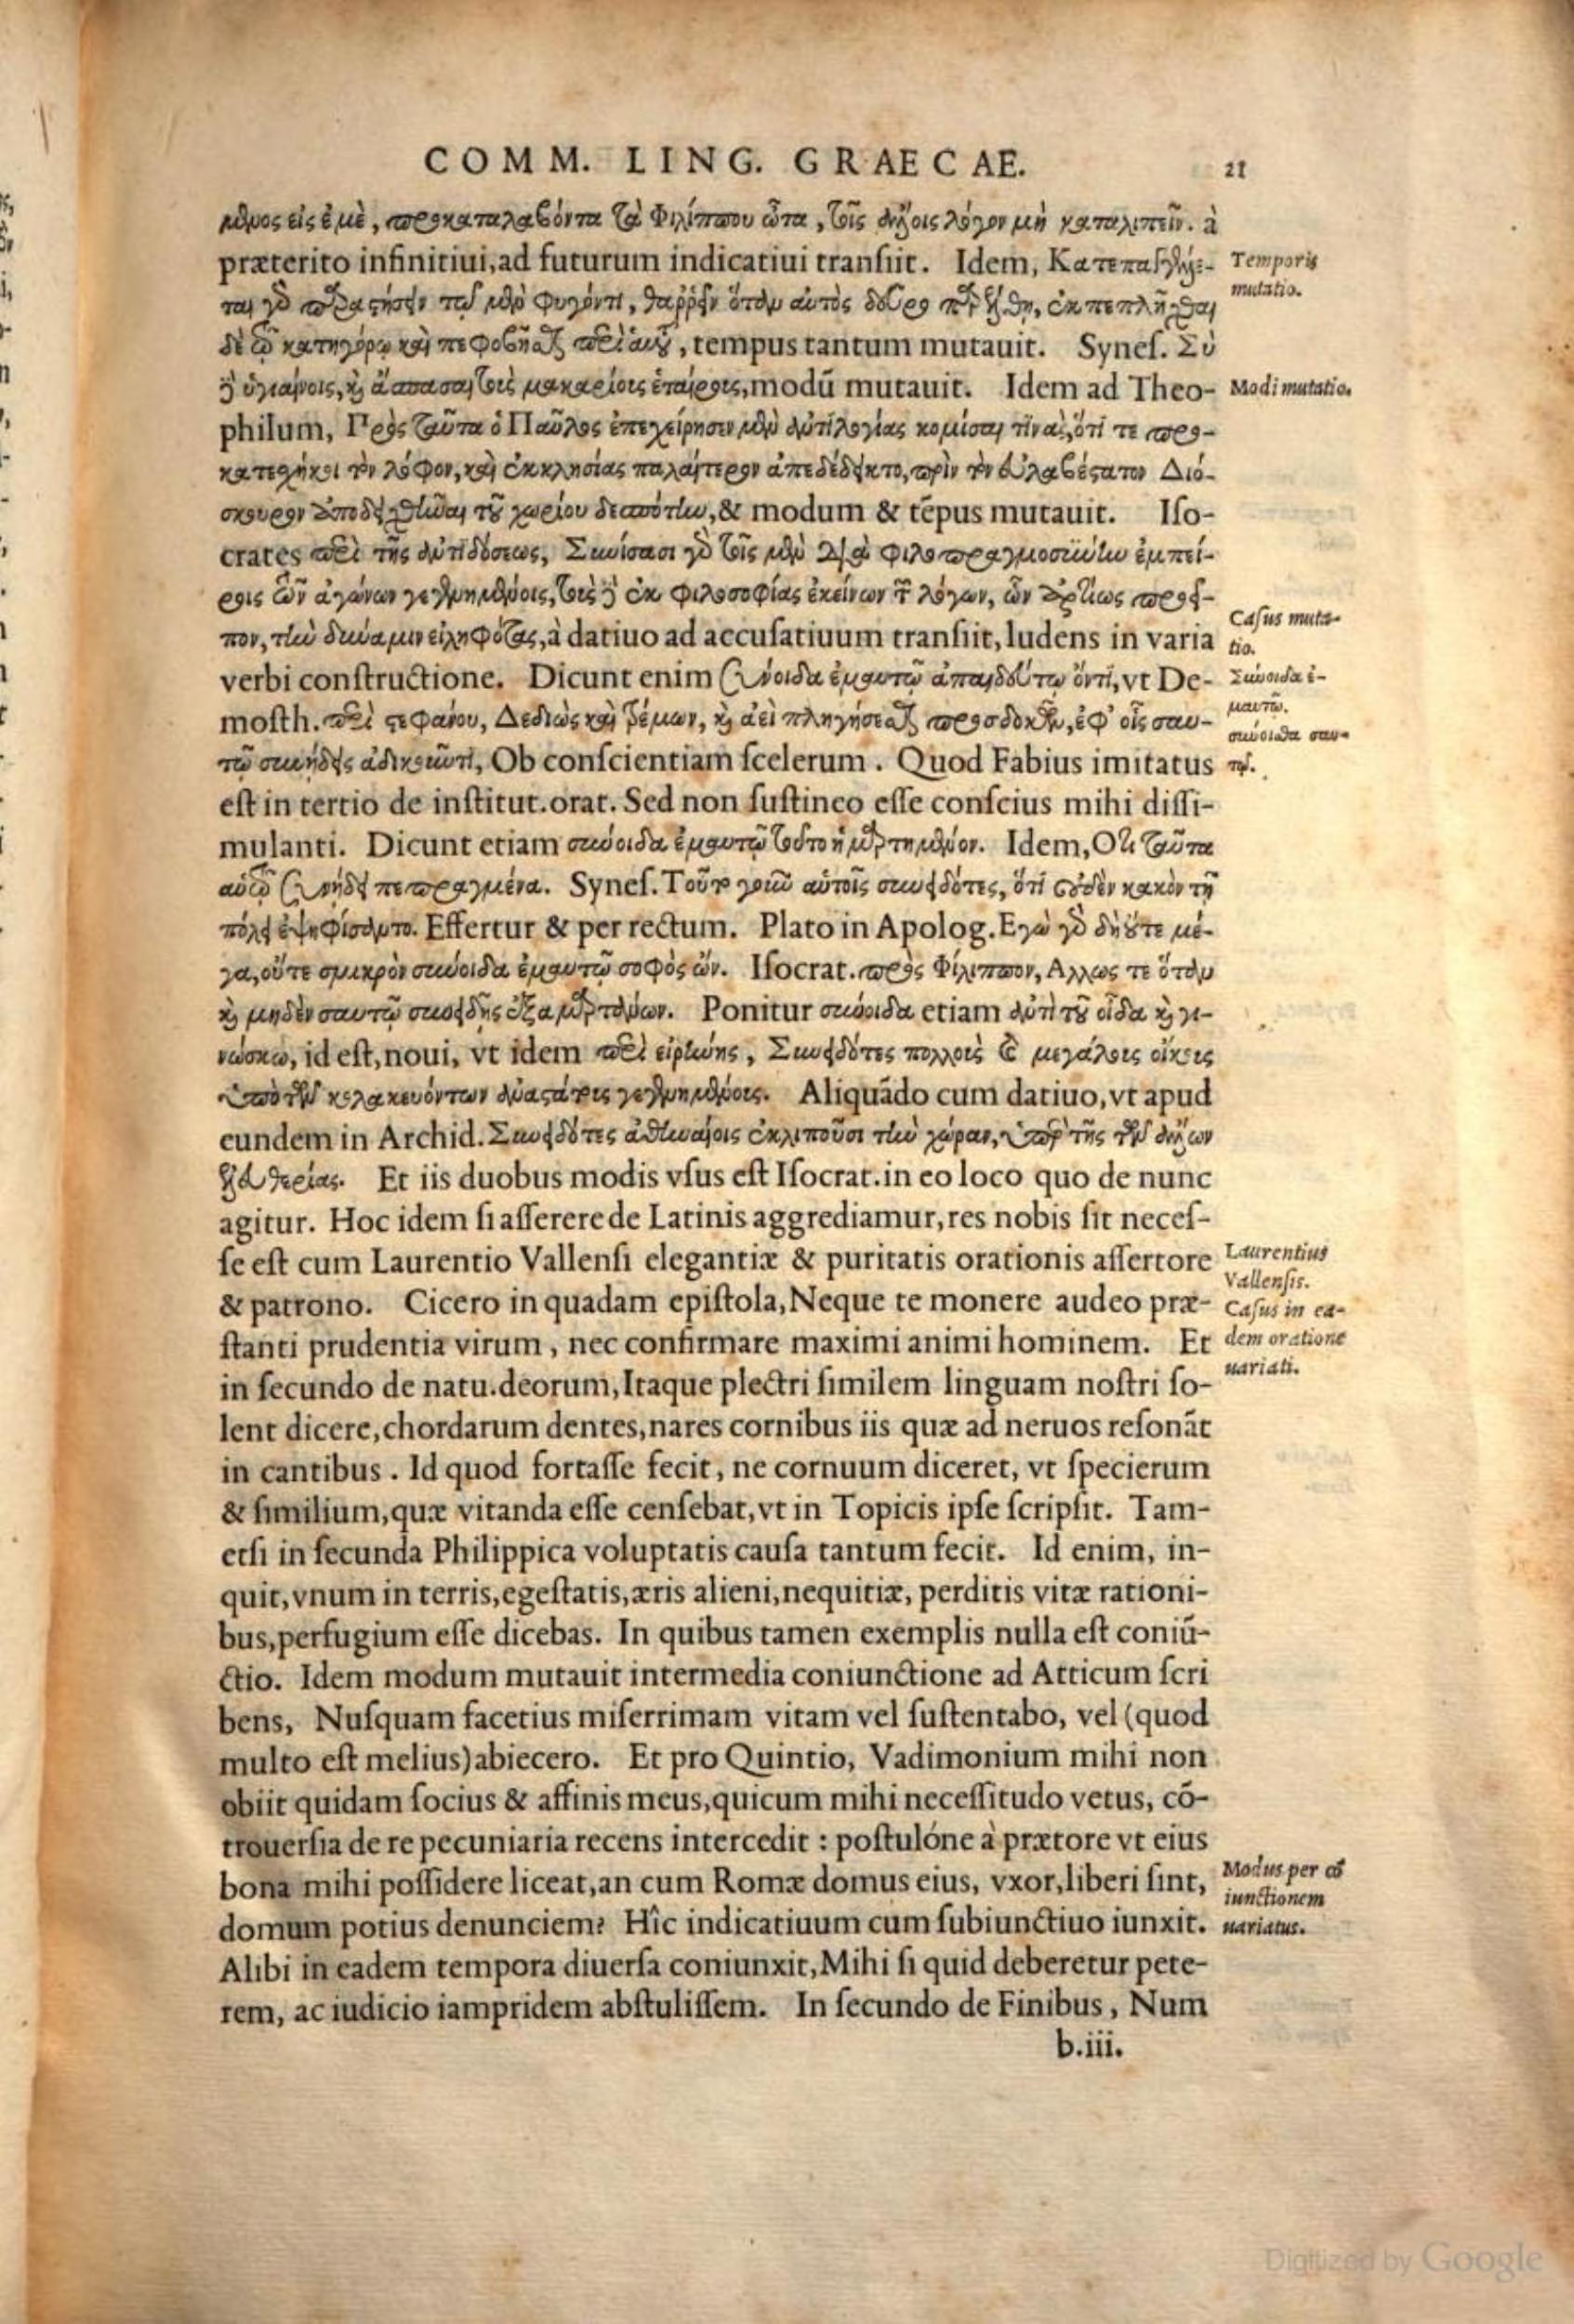 COMM. LING. GRAECAE. 21
μενος εἰς ἐμὲ, προκαταλαβόντα τὰ Φιλίππου ὦτα, τοῖς ἄλλοις λόγον μὴ καταλιπεῖν. à
præterito infinitiui, ad futurum indicatiui tranſiit. Idem, Κατεπαγγέλλε-
Temporis
mutatio.
ται γὰρ παραστήσειν τῷ μὲν φυγόντι, θαῤῥεῖν ὅταν αὐτὸς δεῦρο παρέλθῃ, ἐκπεπλῆχθαι
δὲ τῷ κατηγόρῳ καὶ πεφοβῆσθαι περὶ αὑτοῦ, tempus tantum mutauit. Syneſ. Σὺ
δὲ ὑγιαίνοις, καὶ ἄσπασαι τοὺς μακαρίους ἑταίρους, modū mutauit. Idem ad Theo-
Modi mutatio.
philum, Πρὸς ταῦτα ὁ Παῦλος ἐπεχείρησεν μὲν ἀντιλογίας κομίσαι τινὰς, ὅτι τε προ-
κατεχήκοι τὸν λόφον, καὶ ἐκκλησίας παλαίτερον ἀπεδέδεικτο, πρὶν τὸν εὐλαβέστατον Διό-
σκουρον ἀποδειχθῆναι τοῦ χωρίου δεσπότην, & modum & tēpus mutauit. Iſo-
crates περὶ τῆς ἀντιδόσεως, Συνίσασι γὰρ τοῖς μὲν διὰ φιλοπραγμοσύνην ἐμπεί-
ροις τῶν ἀγώνων γεγενημένοις, τοὺς δὲ ἐκ φιλοσοφίας ἐκείνων τῶν λόγων, ὧν ἀρτίως προεῖ-
πον, τὴν δύναμιν εἰληφότας, à datiuo ad accuſatiuum tranſiit, ludens in varia
Caſus muta-
tio.
verbi conſtructione. Dicunt enim σύνοιδα ἐμαυτῷ ἀπαιδεύτῳ ὄντι, vt De-
Σύνοιδα ἐ-
μαυτῷ.
moſth. περὶ στεφάνου, Δεδιὼς καὶ τρέμων, καὶ ἀεὶ πληγήσεσθαι προσδοκῶν, ἐφ' οἷς σαυ-
σύνοισθα σαυ-
τῷ συνῄδεις ἀδικοῦντι, Ob conſcientiam ſcelerum. Quod Fabius imitatus
τῷ.
eſt in tertio de inſtitut. orat. Sed non ſuſtineo eſſe conſcius mihi diſſi-
mulanti. Dicunt etiam σύνοιδα ἐμαυτῷ τοῦτο ἡμαρτημένον. Idem, Ὅτι ταῦτα
αὑτῷ συνῄδει πεπραγμένα. Syneſ. Τοῦτο γοῦν αὑτοῖς συνειδότες, ὅτι οὐδὲν κακὸν τῇ
πόλει ἐψηφίσαντο. Effertur & per rectum. Plato in Apolog. Εγὼ γὰρ δὴ οὔτε μέ-
γα, οὔτε σμικρὸν σύνοιδα ἐμαυτῷ σοφὸς ὤν. Iſocrat. πρὸς Φίλιππον, Αλλως τε ὅταν
καὶ μηδὲν σαυτῷ συνειδῇς ἐξαμαρτάνων. Ponitur σύνοιδα etiam ἀντὶ τοῦ οἶδα καὶ γι-
νώσκω, id eſt, noui, vt idem περὶ εἰρήνης, Συνειδότες πολλοὺς καὶ μεγάλους οἴκους
ὑπὸ τῶν κολακευόντων ἀναστάτους γεγενημένους. Aliquādo cum datiuo, vt apud
eundem in Archid. Συνειδότες ἀθηναίοις ἐκλιποῦσι τὴν χώραν, ὑπὲρ τῆς τῶν ἄλλων
ἐλευθερίας. Et iis duobus modis vſus eſt Iſocrat. in eo loco quo de nunc
agitur. Hoc idem ſi aſſerere de Latinis aggrediamur, res nobis ſit neceſ-
ſe eſt cum Laurentio Vallenſi elegantiæ & puritatis orationis aſſertore
Laurentius
Vallenſis.
& patrono. Cicero in quadam epiſtola, Neque te monere audeo præ-
Caſus in ea-
ſtanti prudentia virum, nec confirmare maximi animi hominem. Et
dem oratione
uariati.
in ſecundo de natu. deorum, Itaque plectri ſimilem linguam noſtri ſo-
lent dicere, chordarum dentes, nares cornibus iis quæ ad neruos reſonāt
in cantibus. Id quod fortaſſe fecit, ne cornuum diceret, vt ſpecierum
& ſimilium, quæ vitanda eſſe cenſebat, vt in Topicis ipſe ſcripſit. Tam-
etſi in ſecunda Philippica voluptatis cauſa tantum fecit. Id enim, in-
quit, vnum in terris, egeſtatis, æris alieni, nequitiæ, perditis vitæ rationi-
bus, perfugium eſſe dicebas. In quibus tamen exemplis nulla eſt coniū-
ctio. Idem modum mutauit intermedia coniunctione ad Atticum ſcri
bens, Nuſquam facetius miſerrimam vitam vel ſuſtentabo, vel (quod
multo eſt melius) abiecero. Et pro Quintio, Vadimonium mihi non
obiit quidam ſocius & affinis meus, quicum mihi neceſſitudo vetus, cō-
trouerſia de re pecuniaria recens intercedit : poſtulóne à prætore vt eius
bona mihi poſſidere liceat, an cum Romæ domus eius, vxor, liberi ſint,
Modus per cō
iunctionem
domum potius denunciem? Hîc indicatiuum cum ſubiunctiuo iunxit.
uariatus.
Alibi in eadem tempora diuerſa coniunxit, Mihi ſi quid deberetur pete-
rem, ac iudicio iampridem abſtuliſſem. In ſecundo de Finibus, Num
b.iii.
Digitized by Google